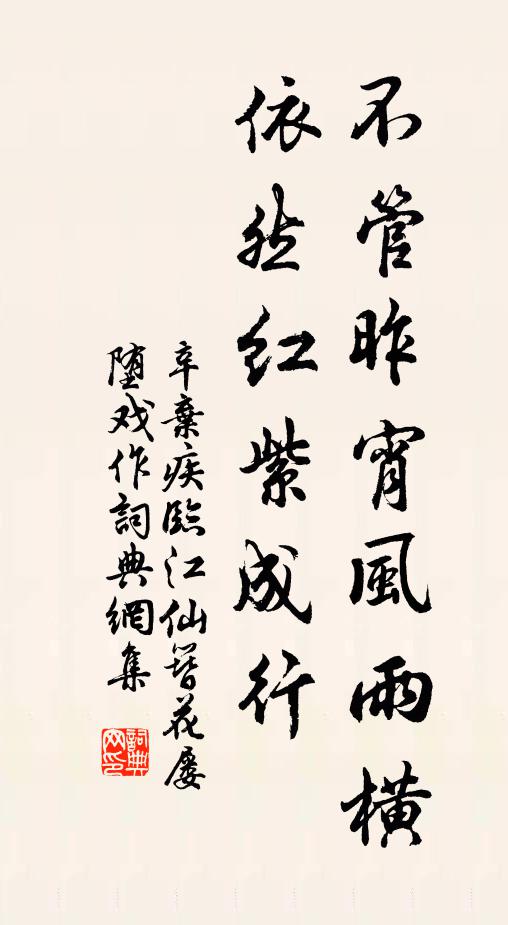 不管昨宵風雨橫
依然红紫成行
辛棄疾臨江仙簪花屡
堕戏作詞典網集
詞典网印